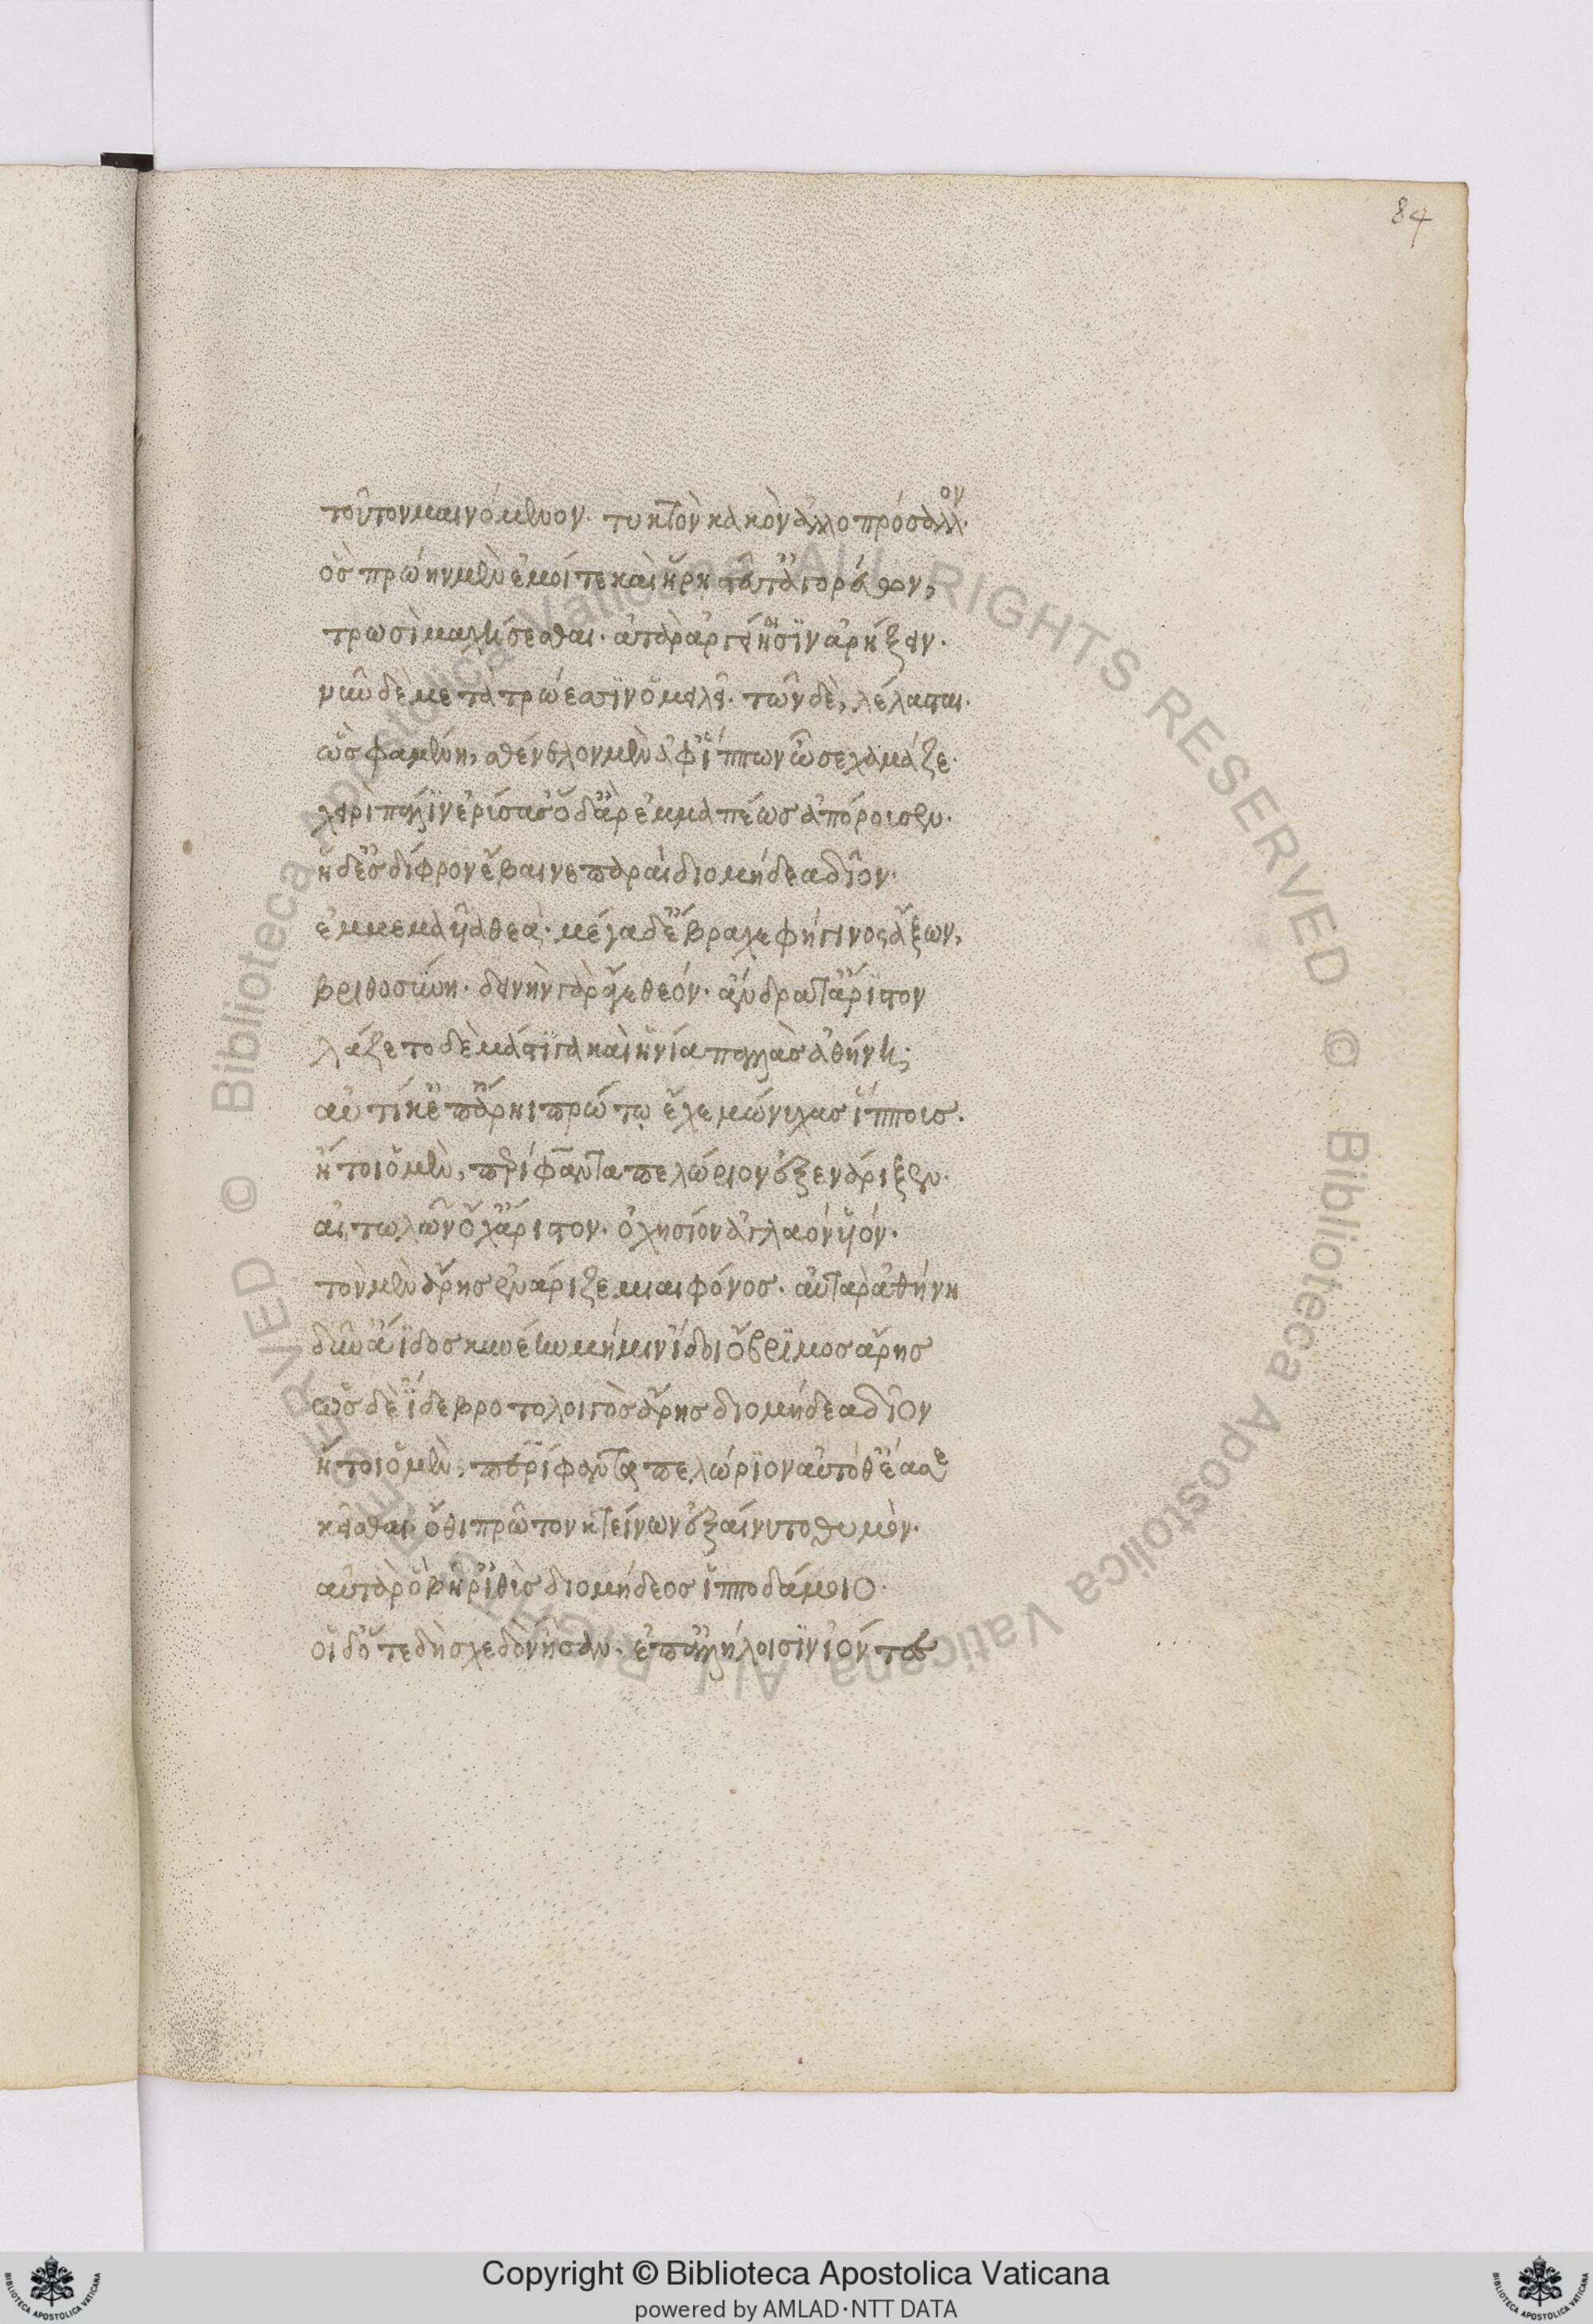 84
τοῦτον μαινόμενον. τυκτὸν κακὸν ἀλλοπρόσαλλον.
ὃς πρώην μὲν ἐμοί τε καὶ ἥρῃ στεῦτ' ἀγορεύων,
τρωσὶ μαχήσεσθαι. ἀτὰρ ἀργείοισιν ἀρήξειν.
νῦν δὲ μετὰ τρώεσσιν ὁμιλεῖ. τῶν δὲ, λέλασται.
ὣς φαμένη, σθένελον μὲν ἀφ' ἵππων ὦσε χαμᾶζε.
χειρὶ πάλιν ἐρύσασ' ὁ δ' ἄρ' ἐμμαπέως ἀπόρουσεν.
ἡ δ' ἐς δίφρον ἔβαινε παραὶ διομήδεα δῖον.
ἐμμεμαυῖα θεά. μέγα δ' ἔβραχε φήγινος ἄξων,
βριθοσύνῃ. δεινὴν γὰρ ἄγε θεόν. ἄνδρα τ' ἄριστον
λάζετο δὲ μάστιγα καὶ ἡνία παλλὰς ἀθήνη;
αὐτίκ' ἐπ' ἄρηϊ πρώτῳ ἔχε μώνυχας ἵππους.
ἤτοι ὁ μὲν, περίφαντα πελώριον ἐξενάριξεν.
αἰτωλῶν ὄχ' ἄριστον. ὀχησίου ἀγλαὸν υἱόν.
τὸν μὲν ἄρης ἐνάριζε μιαιφόνος. αὐτὰρ ἀθήνη
δῦν' ἄϊδος κυνέην μή μιν ἴδοι ὄβριμος ἄρης
ὡς δὲ ἴδε βροτολοιγὸς ἄρης διομήδεα δῖον
ἤτοι ὁ μὲν, περίφαντα πελώριον αὐτόθ' ἔασε
κεῖσθαι. ὅθι πρῶτον κτείνων ἐξαίνυτο θυμόν.
αὐτὰρ ὁ βῆ ῥ' ἰθὺς διομήδεος ἱπποδάμοιο.
οἱ δ' ὅτε δὴ σχεδὸν ἦσαν. ἐπ' ἀλλήλοισιν ἰόντες
© Biblioteca Apostolica Vaticana ALL RIGHTS RESERVED
© Biblioteca Apostolica Vaticana ALL RIGHTS RESERVED
BIBLIOTECA APOSTOLICA VATICANA
Copyright © Biblioteca Apostolica Vaticana
powered by AMLAD·NTT DATA
BIBLIOTECA APOSTOLICA VATICANA